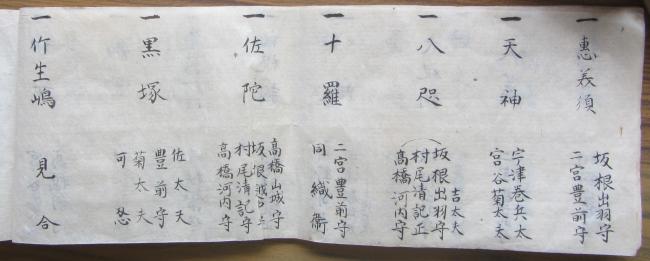 一惠美須
坂根出羽守
二宮豊前守
一天神
宇津巻兵太
宮谷菊太夫
一八咫
吉太夫
坂根出羽守
村尾清記正
高橋河内守
一十羅
二宮豊前守
同織衛
一佐陀
高橋山城守
村尾清記守
高橋河内守
一黒塚
佐太夫
豊前守
菊太夫
一竹生嶋
見合